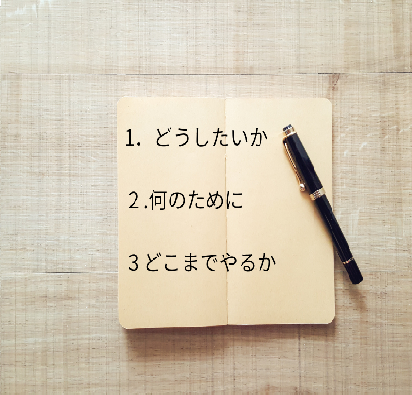 1. どうしたいか
２.何のために
３どこまでやるか